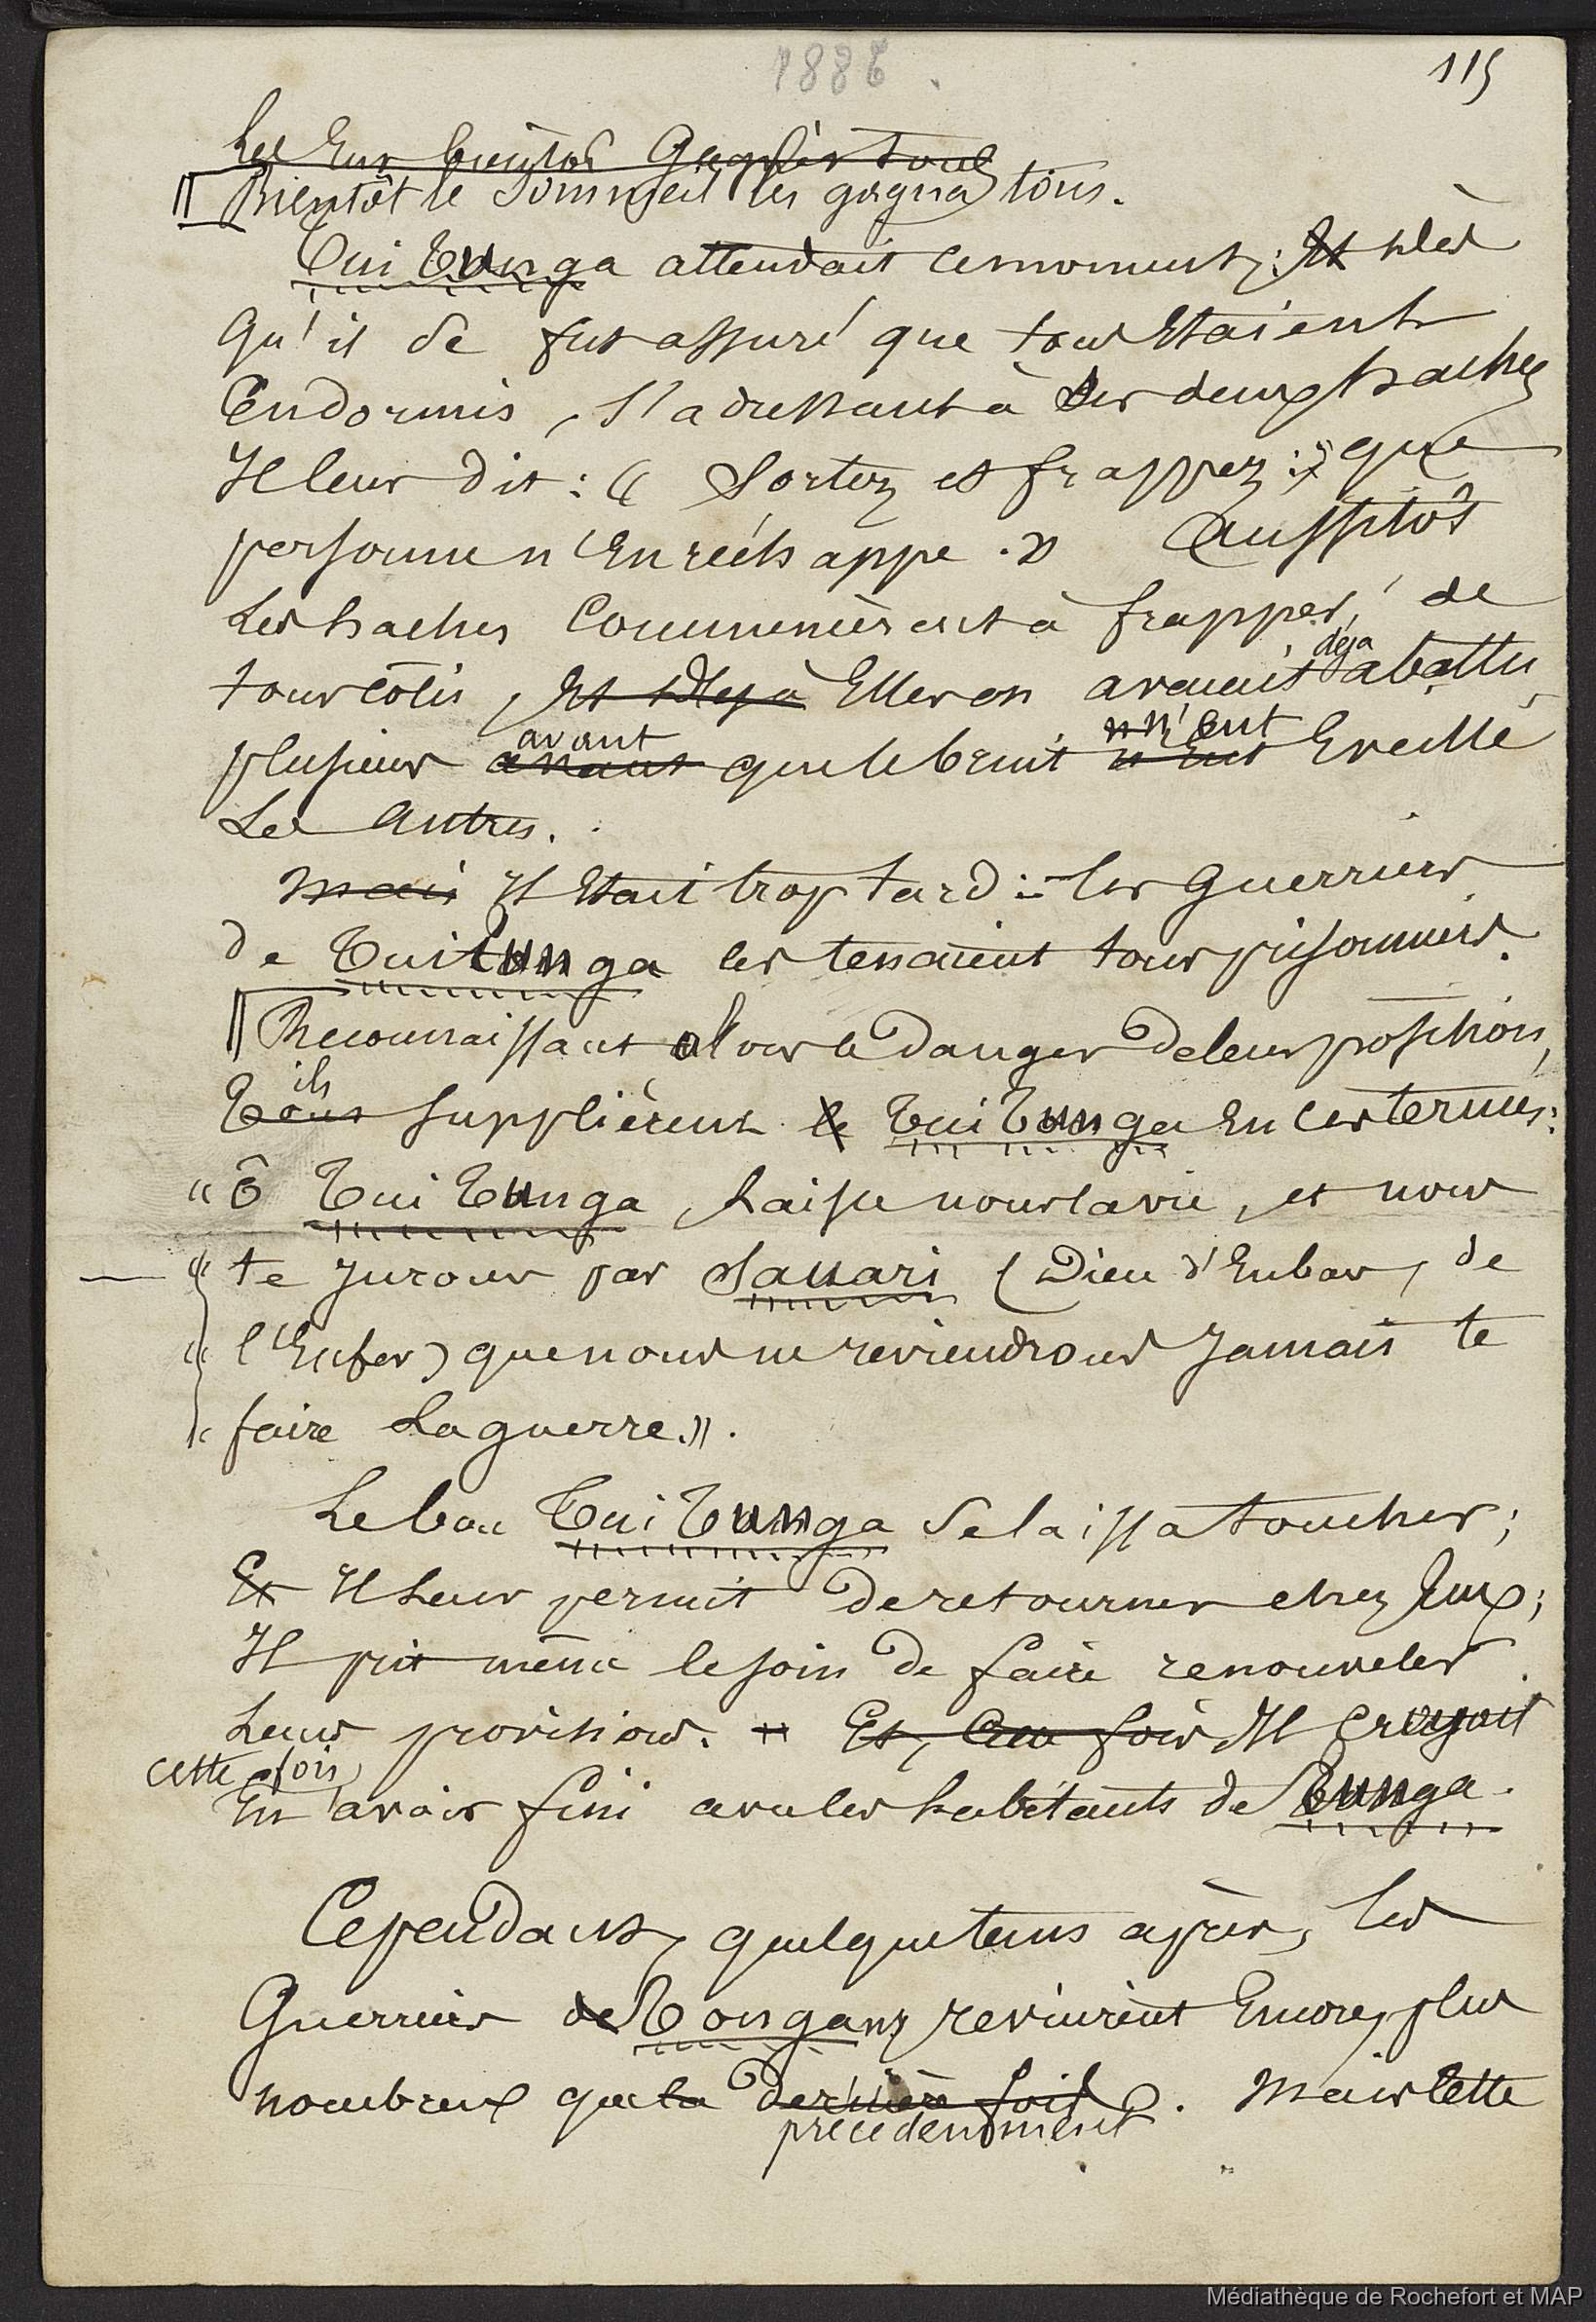 1886.
115
Bientôt le sommeil les gagna tous.
Tui Tunga attendait ce moment; Et dès
qu'il se fut assuré que tous Etaient
Endormis, s'adressant à ses deux haches
Il leur dit: « Sortez et frappez: que
personne n'En réchappe. » Aussitôt
Les haches Commencèrent à frapper, de
tous côtés, Et déjà Elles en avaient déjà abattu
plusieurs avant avant que le bruit n'Eut n'eut Eveillé
Les Autres.
Mais Il Etait trop tard: les Guerriers
de Tui Tunga les tenaient tous prisonniers.
Reconnaissant alors le danger de leur position,
Tous ils supplièrent le Tui Tunga En ces termes:
« ô Tui Tunga, Laisse nous la vie, et nous
« te Jurons par Sauari (Dieu d'Enbas, de
« l'Enfer) que nous ne reviendrons Jamais te
« faire La guerre. ».
Le bon Tui Tunga se laissa toucher;
Et Il Leur permit de retourner chez Eux;
Il prit même le soin de faire renouveler
Leurs provisions. Et, Cette fois Il Croyait
cette fois
En avoir fini avec les habitants de Tunga.
Cependant, quelque tems après, les
Guerriers de Tongans revinrent Encore, plus
nombreux que la dernière fois. Mais Cette
précédemment
Médiathèque de Rochefort et MAP